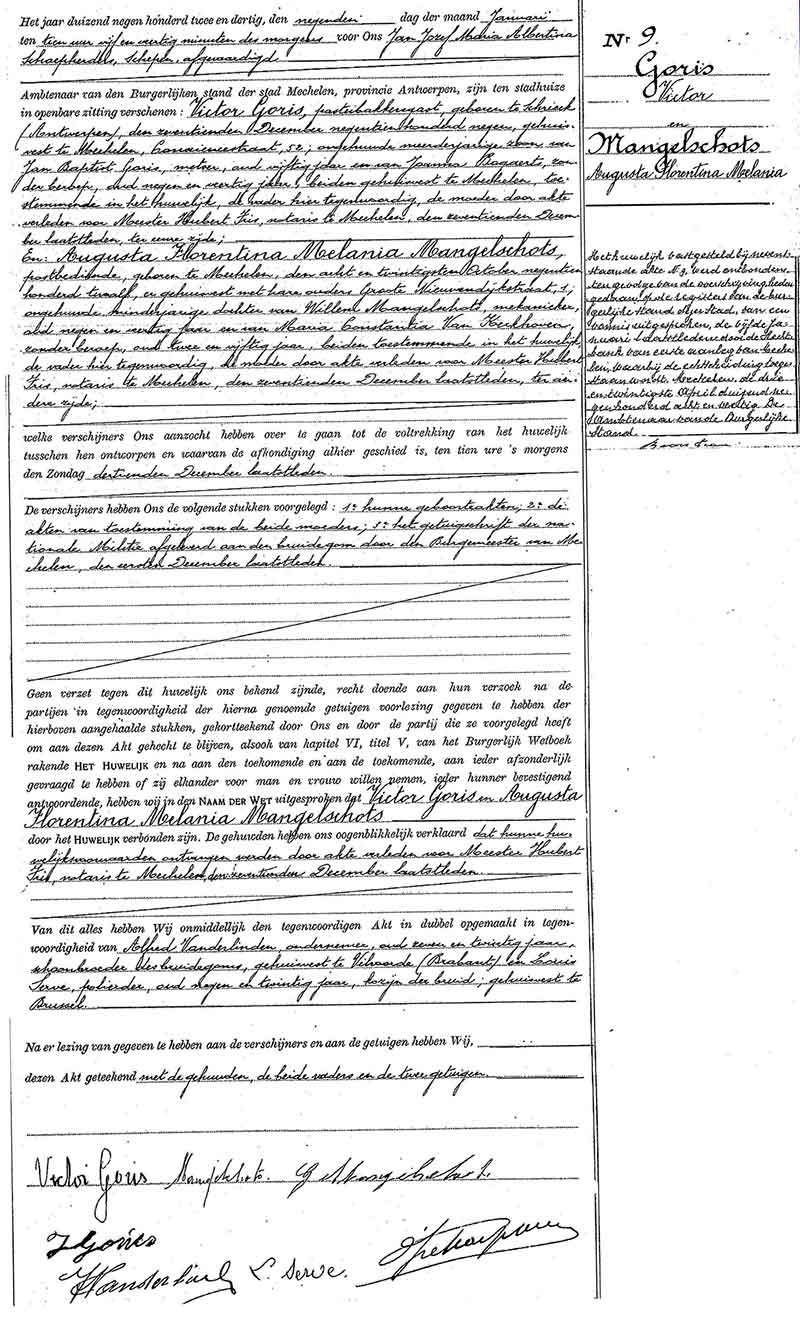 Het jaar duizend negen honderd twee en dertig, den negenden dag der maand Januarii
ten tien uur vijf en veertig minuten des morgens voor Ons Jan Jozef Maria Albertina
Schaepherders, Schepen, afgevaardigd
Ambtenaar van den Burgerlijken stand der stad Mechelen, provincie Antwerpen, zijn ten stadhuize
in openbare zitting verschenen : Victor Goris, pasteibakkersgast, geboren te Schrieck
(Antwerpen), den zeventienden December negentien honderd negen, gehuis-
vest te Mechelen, straat, 52; ongehuwde meerderjarige zoon van
Jan Baptist Goris, metser, oud vijftig jaar en van Joanna Bogaerts, zon-
der beroep, oud negen en veertig jaar, beiden gehuisvest te Mechelen, toe-
stemmende in het huwelijk, de vader hier tegenwoordig, de moeder door akte
verleden voor Meester Hubert Fris, notaris te Mechelen, den zeventienden Decem-
ber laatstleden, ter eene zijde;
En: Augusta Florentina Melania Mangelschots,
postbediende, geboren te Mechelen, den acht en twintigsten October negentien
honderd twaalf, er gehuisvest met hare ouders Groote Nieuwendijkstraat, 1;
ongehuwde minderjarige dochter van Willem Mangelschots, mekanicker,
oud negen en veertig jaar en van Maria Constantia Van Kerkhoven,
zonder beroep, oud twee en vijftig jaar, beiden toestemmende in het huwelijk,
de vader hier tegenwoordig, de moeder door akte verleden voor Meester Hubert
Fris, notaris te Mechelen, den zeventienden December laatstleden, ter an-
dere zijde;
welke verschijners Ons aanzocht hebben over te gaan tot de voltrekking van het huwelijk
tusschen hen ontworpen en waarvan de afkondiging alhier geschied is, ten tien ure 's morgens
den Zondag dertienden December laatstleden.
De verschijners hebben Ons de volgende stukken voorgelegd : 1° hunne geboortakten; 2° de
akten van toestemming van de beide moeders; 3° het getuigschrift der na-
tionale Militie afgeleverd aan den bruidegom door den Burgemeester van Me-
chelen, den eersten December laatstleden.
Geen verzet tegen dit huwelijk ons bekend zijnde, recht doende aan hun verzoek na de
partijen in tegenwoordigheid der hierna genoemde getuigen voorlezing gegeven te hebben der
hierboven aangehaalde stukken, gekortteekend door Ons en door de partij die ze voorgelegd heeft
om aan dezen Akt gehecht te blijven, alsook van kapitel VI, titel V, van het Burgerlijk Wetboek
rakende HET HUWELIJK en na aan den toekomende en aan de toekomende, aan ieder afzonderlijk
gevraagd te hebben of zij elkander voor man en vrouw willen nemen, ieder hunner bevestigend
antwoordende, hebben wij in den NAAM DER WET uitgesproken dat Victor Goris en Augusta
Florentina Melania Mangelschots
door het HUWELIJK verbonden zijn. De gehuwden hebben ons oogenblikkelijk verklaard dat hunne hu-
welijksvoorwaarden ontvangen werden door akte verleden voor Meester Hubert
Fris, notaris te Mechelen, den zeventienden December laatstleden.
Van dit alles hebben Wij onmiddellijk den tegenwoordigen Akt in dubbel opgemaakt in tegen-
woordigheid van Alfred Vanderlinden, ondernemer, oud zeven en twintig jaar,
schoonbroeder des bruidegoms, gehuisvest te Vilvoorde (Brabant) en Louis
Serve, polierder, oud negen en twintig jaar, kozijn der bruid; gehuisvest te
Brussel.
Na er lezing van gegeven te hebben aan de verschijners en aan de getuigen hebben Wij,
dezen Akt geteekend met de gehuwden, de beide vaders en de twee getuigen.
Victor Goris Mangelschots. G Mangelschots
J Goris
Vanderlind L. Serve.
Nr 9.
Goris
Victor
en
Mangelschots
Augusta Florentina Melania
Het huwelijk vastgesteld bij nevens-
staande akte N. 9, werd ontbonden
ten gevolge van de overschrijving heden
gedaan, op de registers van den bur-
gerlijke stand dezer stad, van een
vonnis uitgesproken, de vijfde ja-
nuari laatstleden door de Recht-
bank van eerste aanleg van Meche-
len, waarbij de echtscheiding toege-
staan wordt. Mechelen, de drie
en twintigste April duizend ne-
genhonderd acht en veertig. De
Ambtenaar van de Burgerlijke
Stand.